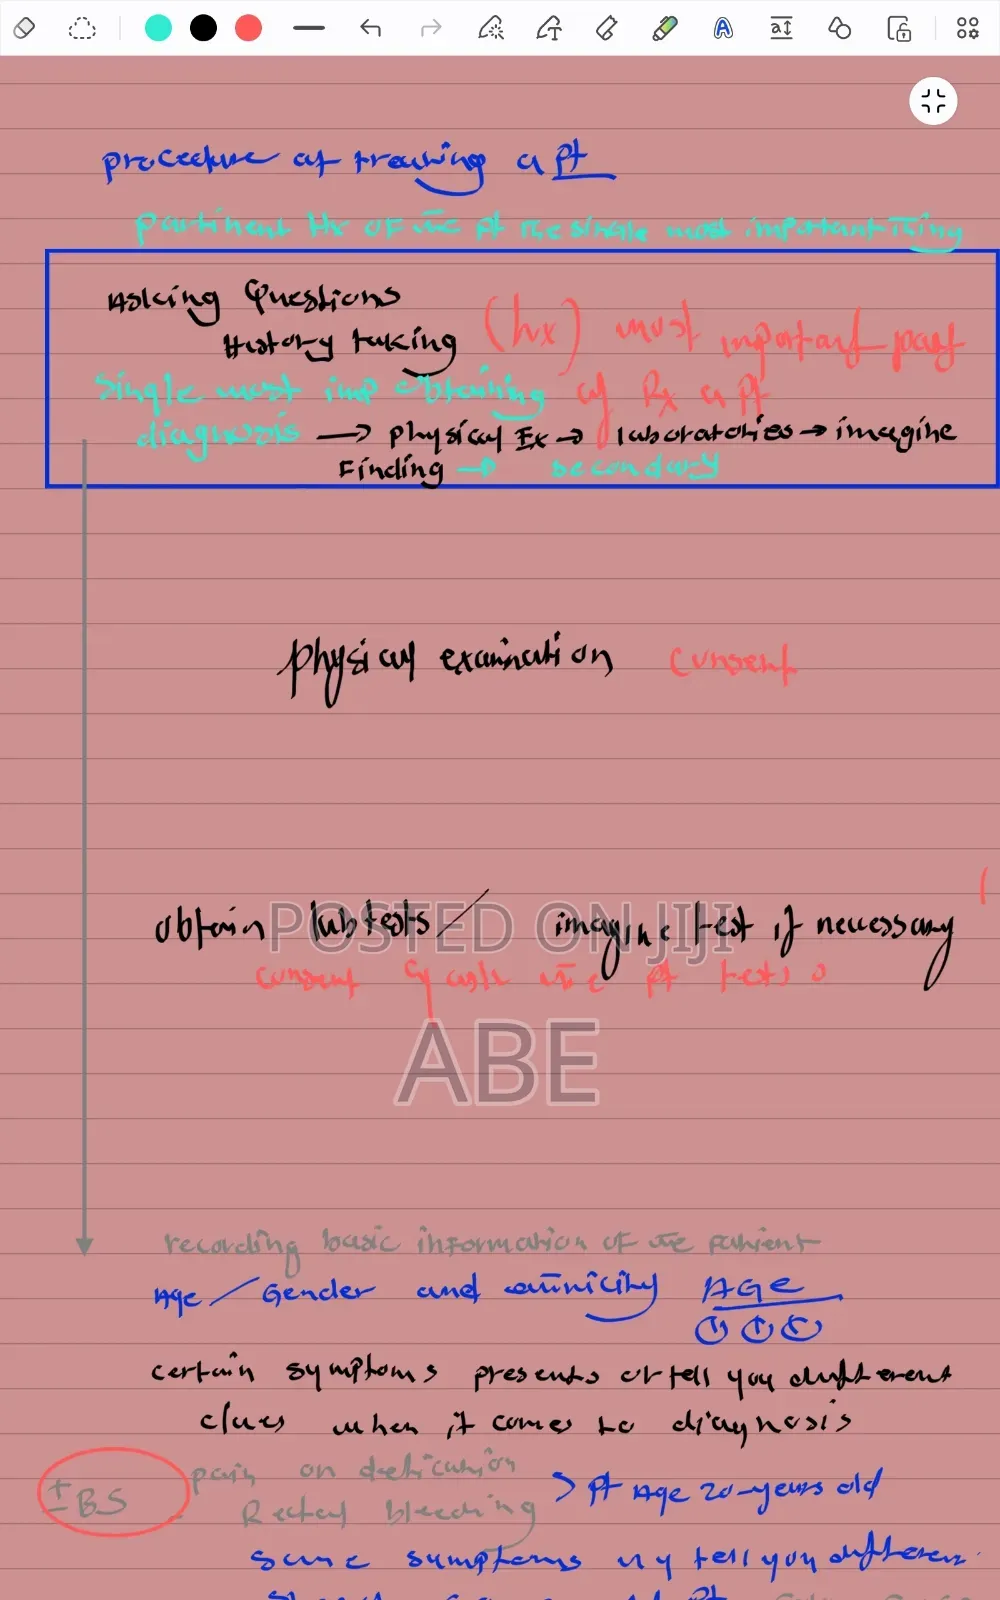 procedure of treating a pt
pertinent Hx of the pt the single most important thing
Asking Questions
History taking (hx) most important part
Single most imp obtaining of Rx a pt
diagnosis → physical Ex → laboratories → imagine
Finding → secondary
physical examination consent
obtain lab tests / imagine test if necessary
POSTED ON JIJI
consent ask the pt tests
ABE
recording basic information of the patient
Age / Gender and ethnicity AGE
certain symptoms presents or tell you different
clues when it comes to diagnosis
pain on defication
IBS Rectal bleeding > pt Age 20-years old
same symptoms tell you different